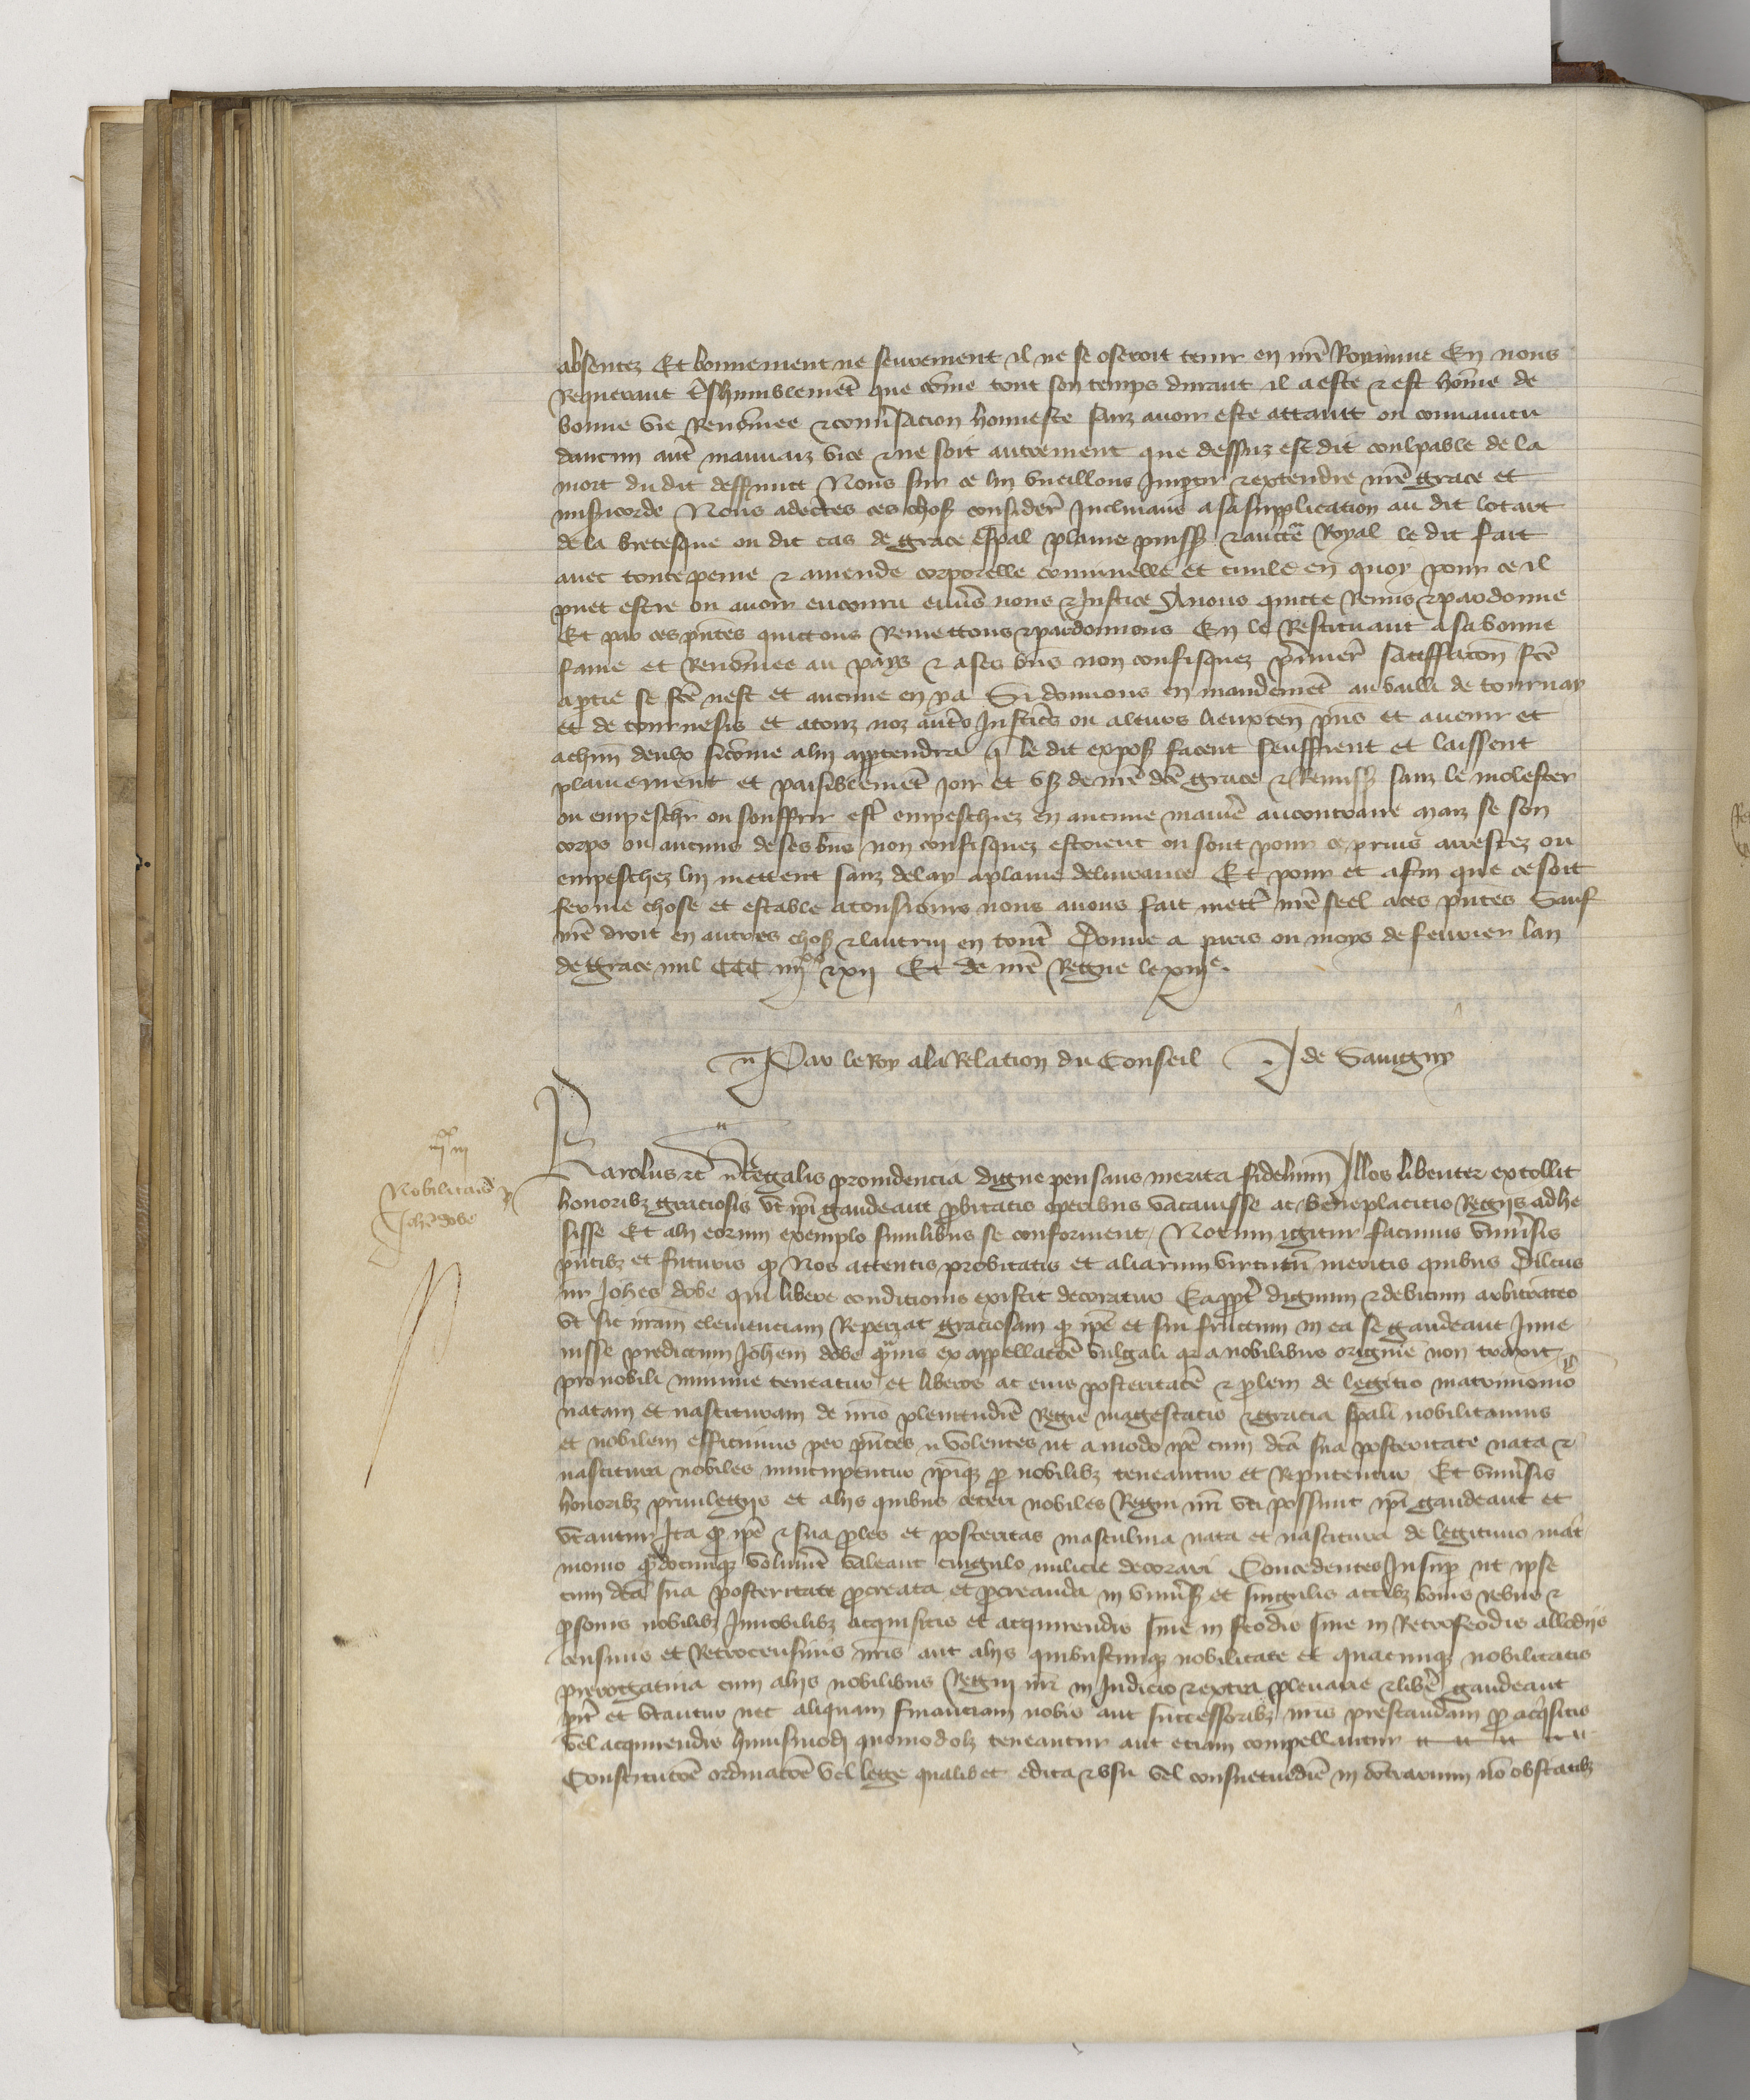 absentez Et bonnement ne seurement il ne se oseroit tenir en nr̃e Royaume En nous
Requerant tr̃shumblemẽt que cõme tout son temps durant il a este ⁊ est hõme de
bonne vie Renõmee ⁊ conũsacion honneste sanz avoir este attaint ou convaincu
daucun autr̃ mauvaiz vice ⁊ ne soit autrement que dessuz est dit coulpable de la
mort du dit deffunct Nous sur ce lui vueillons Impartir ⁊ extendre nr̃e grace et
mis̃icorde Nous adectes ces choses consider̃ Inclinans a sa supplication au dit lotart
de la bretesque ou dit cas de grace esp̃al plaine puiss̃ ⁊ auctẽ Royal le dit fait
avec toute peine ⁊ amende corporelle criminelle et civile en quoy pour ce il
puet estre ou avoir encouru env̾s nous ⁊ Justice Avons quicte Remis ⁊ pardonne
Et par ces pñtes quictons Remettons ⁊ pardonnons En le Restituant a sa bonne
fame et Renõmee au pays ⁊ a ses biens non confisquez p̃mier̃ satiffacõn fc̃e
a ptie se fc̃e nest et aucune en ya Si donnons en mandemẽt au bailli de tournay
et de tournesis et a touz noz autr̃s Justic̃s ou a leurs lieuxten̄ p̃ns et avenir et
a chun̄ deulx sicõme a lui appartendra q̃ le dit expos̃ facent seuffrent et laissent
plainement et paisiblemẽt joir et us̃ de nr̃e dc̃e grace ⁊ Remiss̃ sanz le molester
ou empeschr̃ ou souffrir estr̃ empeschiez en aucune manier̃e au contraire maiz se son
corps ou aucuns de ses biens non confisquez estoient ou sont pour ce prins arrestez ou
empeschez lui mettent sanz delay a plaine delivrance Et pour et afin que ce soit
ferme chose et estable a tousiours nous avons fait mettr̃ nr̃e seel a ces pñtes Sauf
nr̃e droit en autres chos̃ ⁊ lautrui en tout̃ Donne a paris ou moys de fevrier lan
de grace mil CCC iiijxx ⁊ xij Et de nr̃e Regne le xiije.
Par le Roy a la Relation du Conseil de Savigny
iiijxx iij
Nobilitatio
Joh̃is dobe
Karolus ⁊c̃ Regalis providencia digne pensans merita fidelium Illos libenter extollit
honoribꝫ graciosis vt ip̃i gaudeant probitatis operibus vacavisse ac beneplacitis Regiis adhe
sisse Et alii eorum exemplo similibus se conforment Notum igitur facimus univ̾sis
pñtibꝫ et futuris qꝫ Nos attentis probitatis et aliarum virtutũ meritis quibus Dilc̃us
nr̃ Joh̃es dobe qui libere conditionis existit decoratur Eapp̃t dignum ⁊ debitum arbitrantes
vt sic nr̃am clemenciam Reperiat graciosam qꝫ ip̃e et sui fructum in ea se gaudeant Inve
nisse predictum Joh̃em dobe q̃vis ex appellacõe vulgali qz a nobilibus originẽ non traxit
pro nobili minime teneatur et liberos ac eius posteritatẽ ⁊ prolem de legitĩo matrimonio
natam et nascituram de nr̃e plenitudĩe Regie magestatis ⁊ gracia sp̃ali nobilitamus
et nobilem efficimus per pñtes volentes ut a modo ip̃e cum dc̃a sua posteritate nata ⁊
nascitura nobiles nuncupentur ip̃iqꝫ pro nobilibꝫ teneantur et Reputentur Et univ̾sis
honoribꝫ privilegiis et aliis quibus ceteri nobiles Regni nr̃i uti possunt ip̃i gaudeant et
utantur Ita qꝫ ip̃e ⁊ sua proles et posteritas masculina nata et nascitura de legitimo mat̃
monio qꝫdocunqꝫ volu̾int valeant cingulo milicie decorari Concedentes Insup̱ ut ipse
cum dc̃a sua posteritate procreata et procreanda in univ̾s̃ et singulis actibꝫ bonis rebus ⁊
ꝑsonis nobilibꝫ Innobilibꝫ acquisitis et acquirendis sive in feodis sive in Retrofeodis allodiis
censivis et Retrocensivis nr̃is aut aliis quibuscunqꝫ nobilitate et quacunqꝫ nobilitatis
prerogativa cum aliis nobilibus Regni nr̃i in Judicio ⁊ extra plenarie ⁊ liber̃e gaudeant
par̃t et utantur nec aliquam financiam nobis aut successoribꝫ nr̃is prestandam pro acq̃sitis
vel acquirendis huiusmodi quomodolꝫ teneantur aut etiam compellantur
Constitucõe ordinacõe vel lege qualibet edita ⁊ usu vel consuetudĩe in contrarium nõ obstantibꝫ